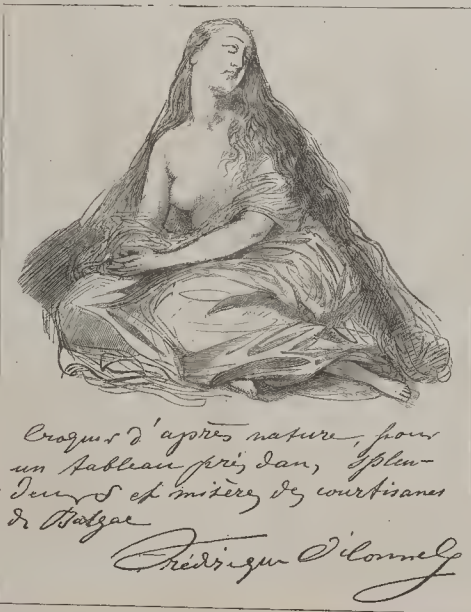 Croquis d'après nature, pour
un tableau pris dans, splen-
deurs et misères des courtisanes
de Balzac
Frédérique O'Connell